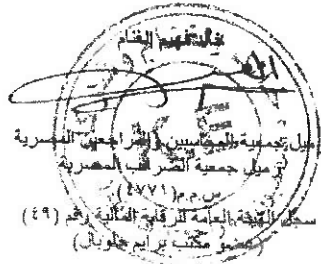 خالد فهيم الفقام
زميل جمعية المحاسبين والمراجعين المصرية
زميل جمعية الضرائب المصرية
س.م.م (٤٧٧١)
سجل الهيئة العامة للرقابة المالية رقم (٤٩)
(عضو مكتب برايم جلوبال)